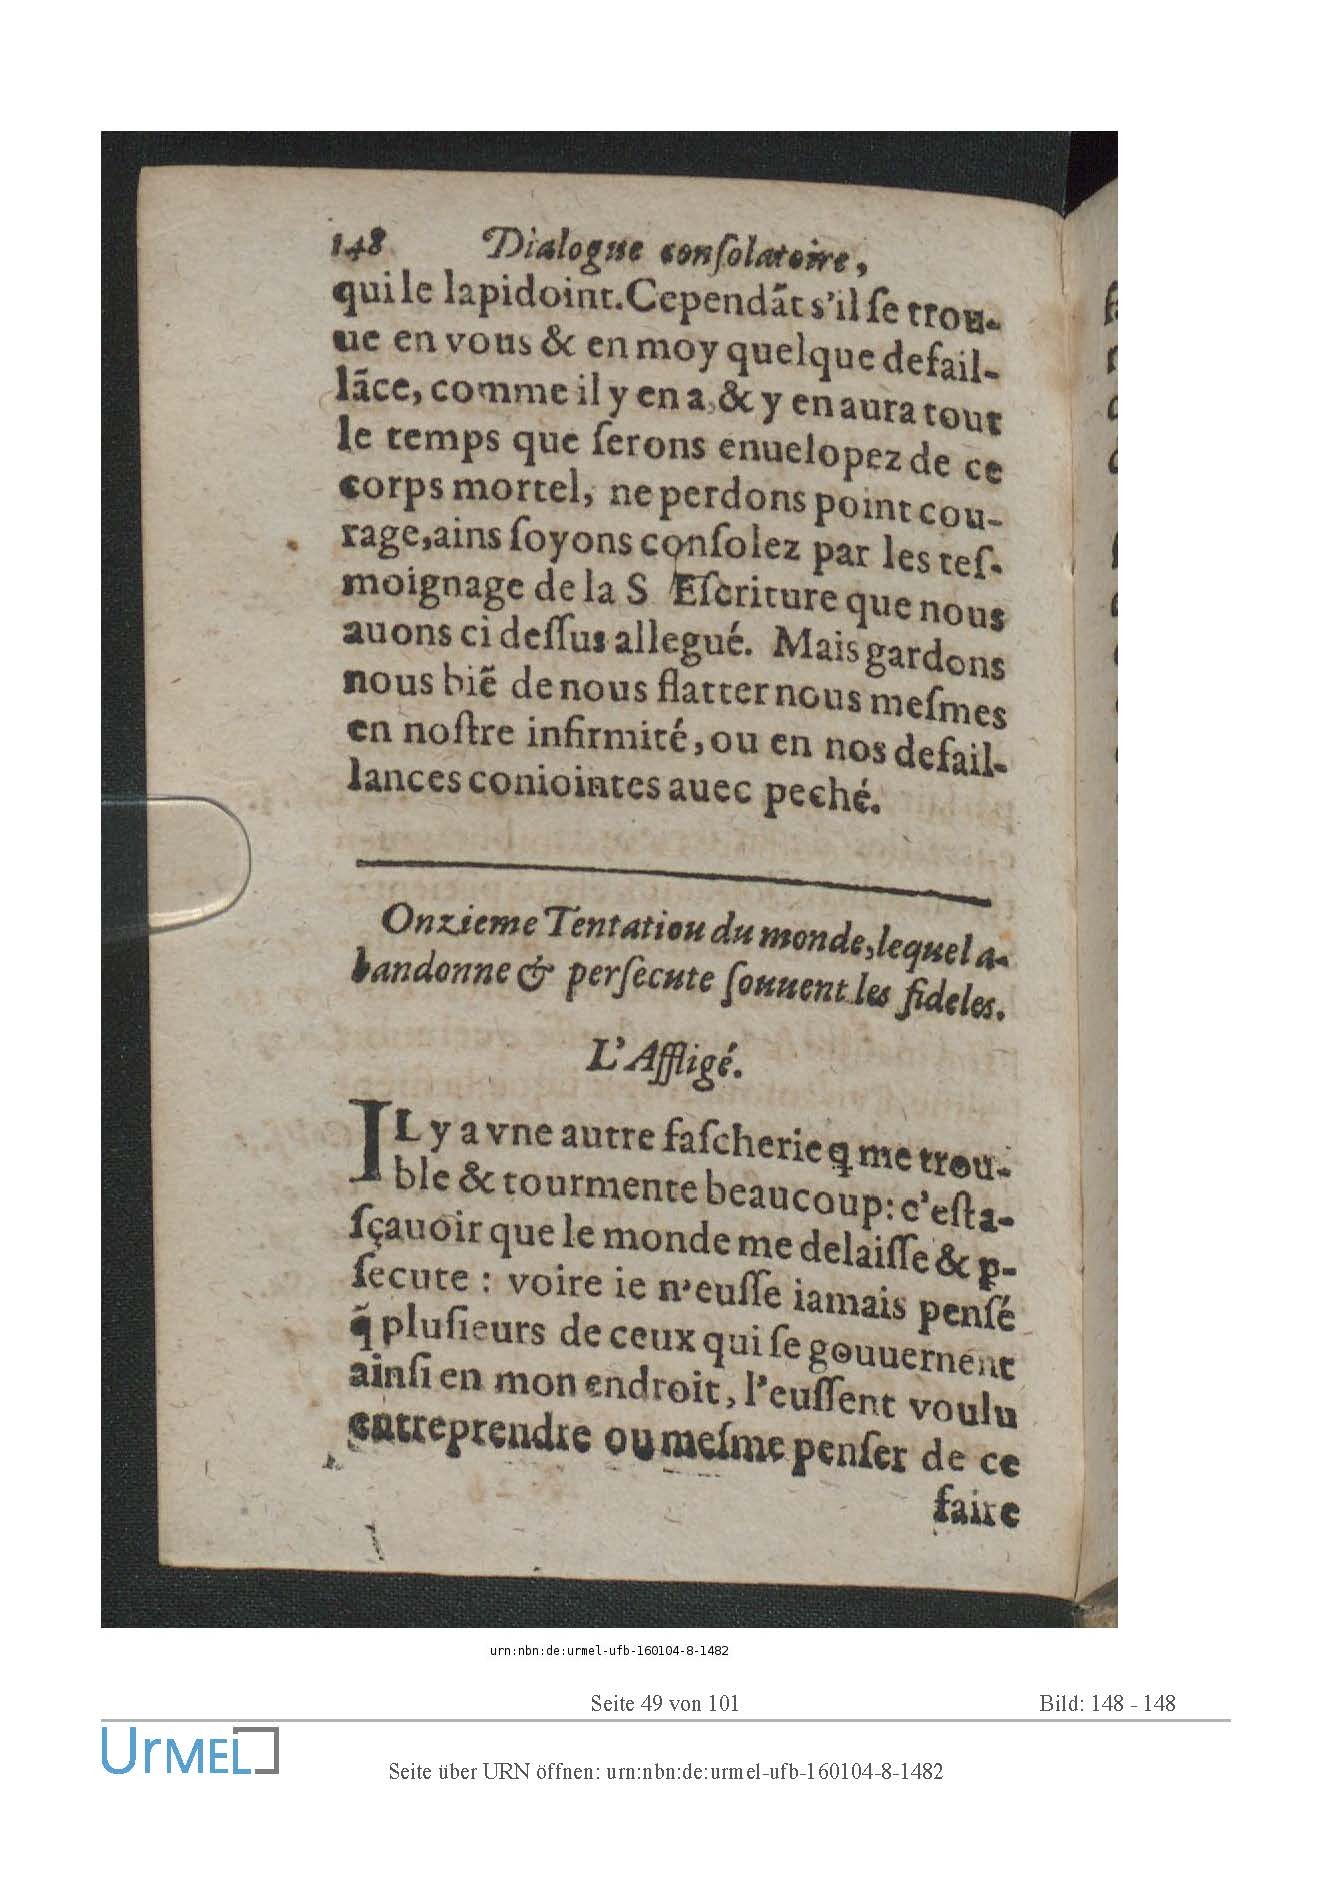 148 Dialogue conſolatoire,
qui le lapidoint. Cependãt s'il ſe trou-
ue en vous & en moy quelque defail-
lãce, comme il y en a, & y en aura tout
le temps que ſerons enuelopez de ce
corps mortel, ne perdons point cou-
rage, ains ſoyons conſolez par les teſ-
moignage de la S Eſcriture que nous
auons ci deſſus allegué. Mais gardons
nous biẽ de nous flatter nous meſmes
en noſtre infirmité, ou en nos defail-
lances coniointes auec peché.
Onzieme Tentatiou du monde, lequel a-
bandonne & perſecute ſouuent les fideles.
L'Affligé.
IL y a vne autre faſcherie q̃ me trou-
ble & tourmente beaucoup: c'eſt a-
ſçauoir que le monde me delaiſſe & ꝑ-
ſecute : voire ie n'euſſe iamais penſé
q̃ pluſieurs de ceux qui ſe gouuernent
ainſi en mon endroit, l'euſſent voulu
entreprendre ou meſme penſer de ce
faire
urn:nbn:de:urmel-ufb-160104-8-1482
Seite 49 von 101 Bild: 148 - 148
UrMEL
Seite über URN öffnen: urn:nbn:de:urmel-ufb-160104-8-1482